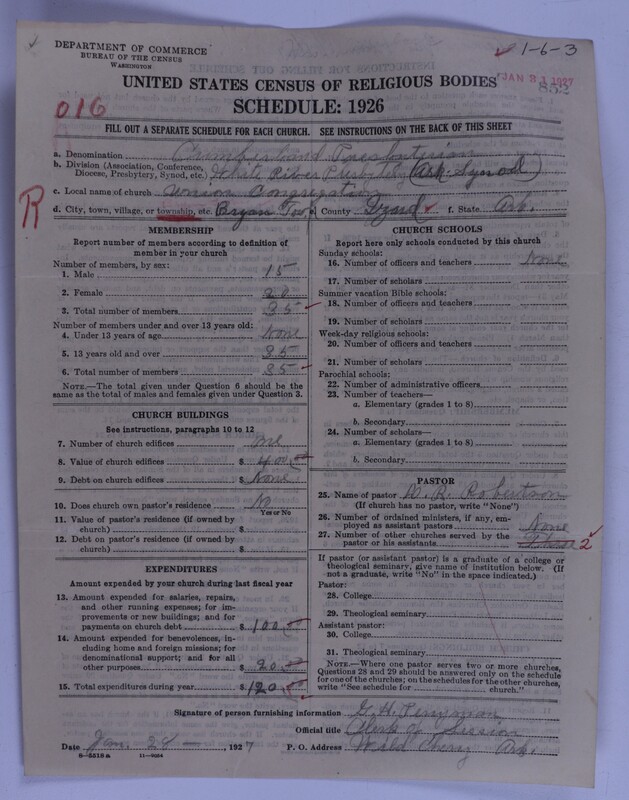 DEPARTMENT OF COMMERCE
BUREAU OF THE CENSUS
WASHINGTON
1-6-3
UNITED STATES CENSUS OF RELIGIOUS BODIES
JAN 31 1927
852
016
SCHEDULE: 1926
FILL OUT A SEPARATE SCHEDULE FOR EACH CHURCH. SEE INSTRUCTIONS ON THE BACK OF THIS SHEET
a. Denomination Cumberland Presbyterian
b. Division (Association, Conference, Diocese, Presbytery, Synod, etc.) White River Presbytery (Ark. Synod)
c. Local name of church Union Congregation
R
d. City, town, village, or township, etc. Bryan Tow. e. County Izard f. State Ark.
MEMBERSHIP
Report number of members according to definition of member in your church
Number of members, by sex:
1. Male 15
2. Female 20
3. Total number of members 35
Number of members under and over 13 years old:
4. Under 13 years of age None
5. 13 years old and over 35
6. Total number of members 35
NOTE.—The total given under Question 6 should be the same as the total of males and females given under Question 3.
CHURCH BUILDINGS
See instructions, paragraphs 10 to 12
7. Number of church edifices one
8. Value of church edifices $ 400
9. Debt on church edifices $ None
10. Does church own pastor's residence No
Yes or No
11. Value of pastor's residence (if owned by church) $
12. Debt on pastor's residence (if owned by church) $
EXPENDITURES
Amount expended by your church during last fiscal year
13. Amount expended for salaries, repairs, and other running expenses; for improvements or new buildings; and for payments on church debt $ 100
14. Amount expended for benevolences, including home and foreign missions; for denominational support; and for all other purposes $ 20
15. Total expenditures during year $ 120
CHURCH SCHOOLS
Report here only schools conducted by this church
Sunday schools:
16. Number of officers and teachers None
17. Number of scholars
Summer vacation Bible schools:
18. Number of officers and teachers
19. Number of scholars
Week-day religious schools:
20. Number of officers and teachers
21. Number of scholars
Parochial schools:
22. Number of administrative officers
23. Number of teachers—
a. Elementary (grades 1 to 8)
b. Secondary
24. Number of scholars—
a. Elementary (grades 1 to 8)
b. Secondary
PASTOR
25. Name of pastor D. R. Robertson
(If church has no pastor, write "None")
26. Number of ordained ministers, if any, employed as assistant pastors None
27. Number of other churches served by the pastor or his assistants Three 2
If pastor (or assistant pastor) is a graduate of a college or theological seminary, give name of institution below. (If not a graduate, write "No" in the space indicated.)
Pastor:
28. College
29. Theological seminary
Assistant pastor:
30. College
31. Theological seminary
NOTE.—Where one pastor serves two or more churches, Questions 28 and 29 should be answered only on the schedule for one of the churches; on the schedules for the other churches, write "See schedule for church."
Signature of person furnishing information G. H. Perryman
Official title Clerk of Session
Date Jan. 28 — , 1927 P. O. Address Wild Cherry Ark.
8-5518a 11-9064